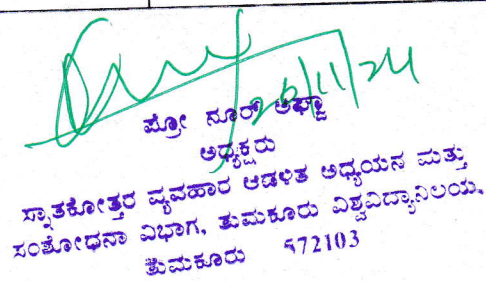 26/11/24
ಪ್ರೊ ನೂರ್ ಅಫ್ಜಾ
ಅಧ್ಯಕ್ಷರು
ಸ್ನಾತಕೋತ್ತರ ವ್ಯವಹಾರ ಆಡಳಿತ ಅಧ್ಯಯನ ಮತ್ತು
ಸಂಶೋಧನಾ ವಿಭಾಗ, ತುಮಕೂರು ವಿಶ್ವವಿದ್ಯಾನಿಲಯ,
ತುಮಕೂರು 572103